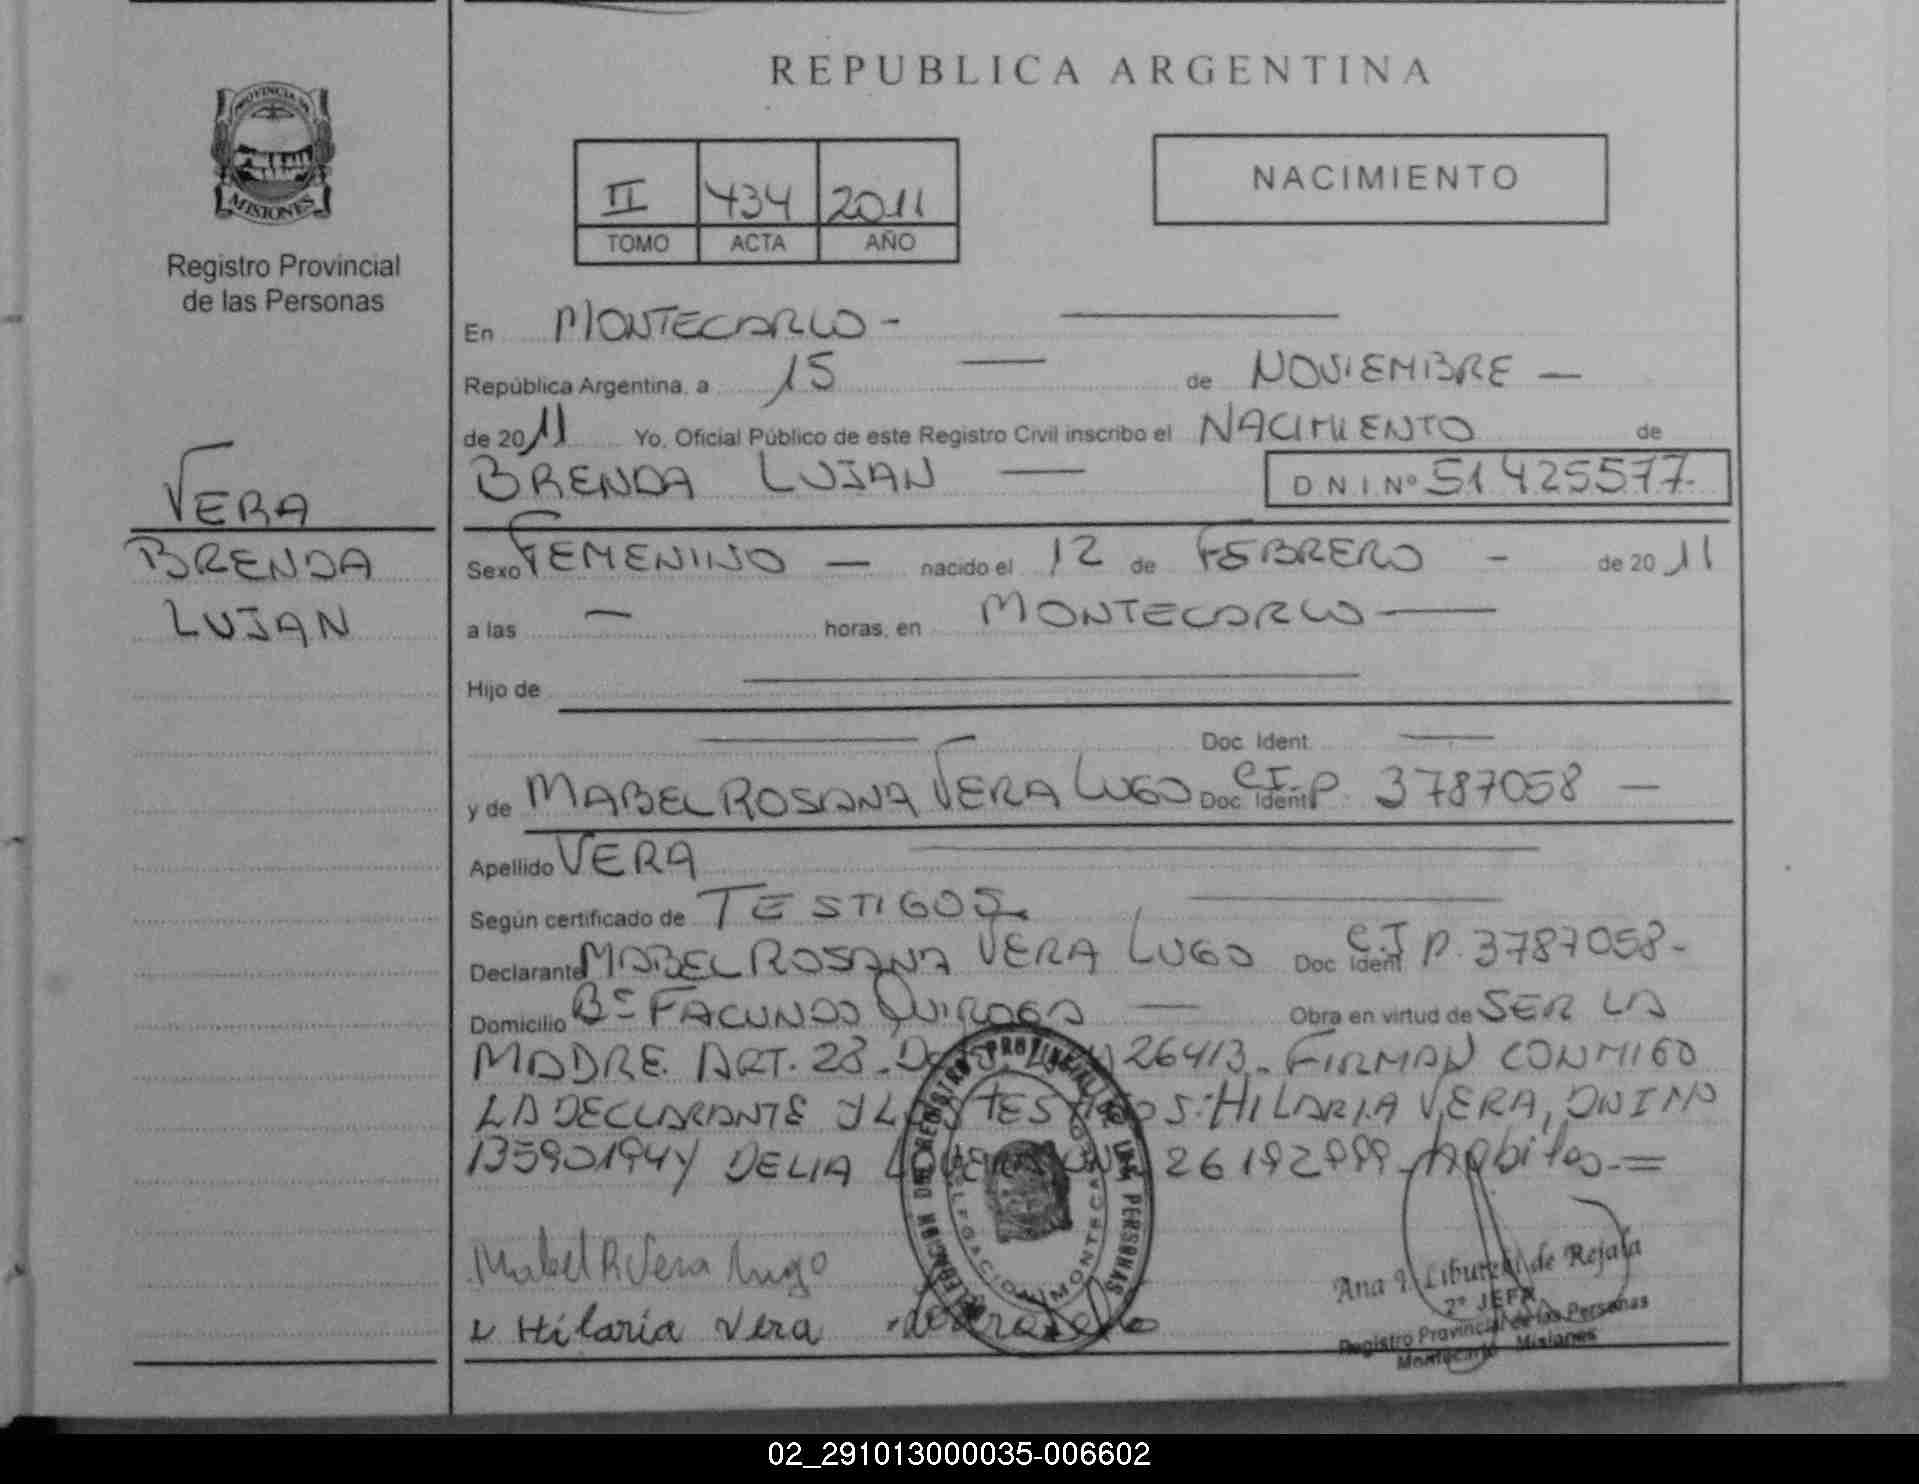 REPUBLICA ARGENTINA
PROVINCIA DE
MISIONES
Registro Provincial
de las Personas
II 434 2011
TOMO ACTA AÑO
NACIMIENTO
En MONTECARLO -
República Argentina, a 15 — de NOVIEMBRE —
de 2011 Yo, Oficial Público de este Registro Civil inscribo el NACIMIENTO de
BRENDA LUJAN — D N I Nº 51425577-
VERA
BRENDA
LUJAN
Sexo FEMENINO — nacido el 12 de FEBRERO - de 2011
a las — horas, en MONTECARLO —
Hijo de —
— Doc. Ident. —
y de MABEL ROSANA VERA LUGO Doc. Ident. C.I.P. 3787058 —
Apellido VERA —
Según certificado de TESTIGOS. —
Declarante MABEL ROSANA VERA LUGO Doc. Ident. C.I P. 3787058-
Domicilio Bº FACUNDO QUIROGA — Obra en virtud de SER LA
MADRE. ART. 28. 26413. FIRMAN CONMIGO
LA DECLARANTE Y LOS TESTIGOS: HILARIA VERA, DNI Nº
13590194 Y DELIA 26192999 - habiles. =
Mabel R Vera Lugo
Hilaria Vera
DELEGACION DE REGISTRO PROVINCIAL DE LAS PERSONAS
DELEGACION MONTECARLO
Ana I. de Rejala
2º JEFA
Registro Provincial de las Personas
Montecarlo - Misiones
02_291013000035-006602